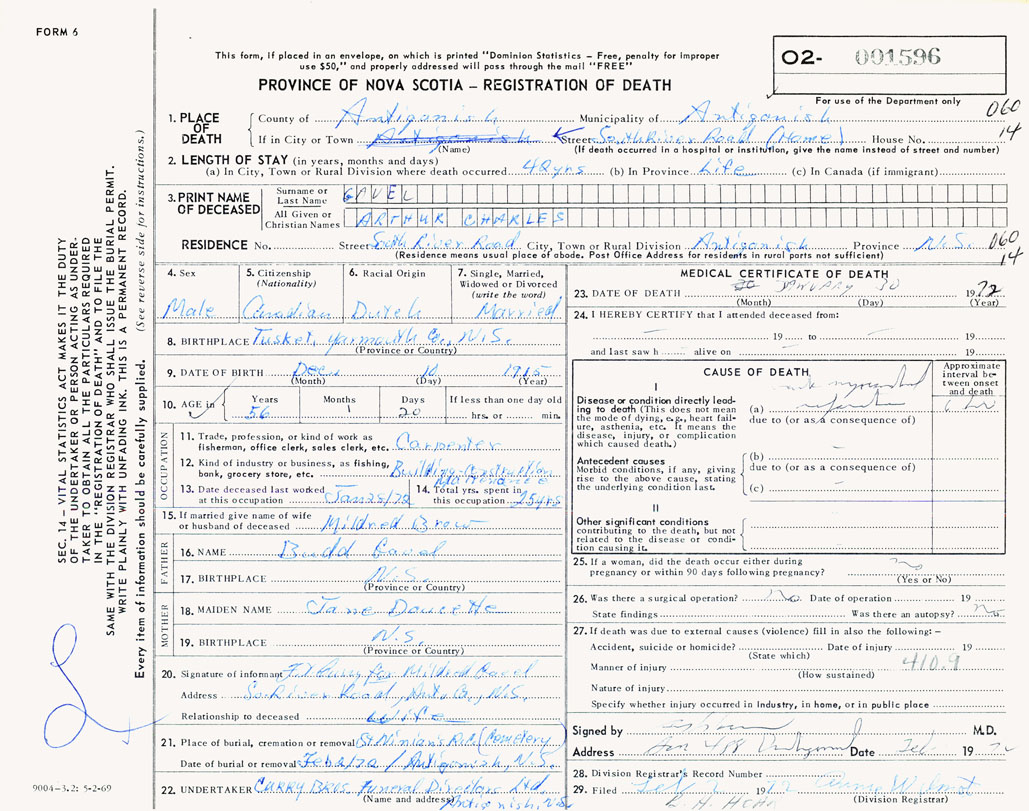 FORM 6
This form, if placed in an envelope, on which is printed "Dominion Statistics – Free, penalty for improper
use $50," and properly addressed will pass through the mail "FREE"
PROVINCE OF NOVA SCOTIA – REGISTRATION OF DEATH
02- 001596
For use of the Department only
060
14
1. PLACE OF DEATH
County of Antigonish Municipality of Antigonish
If in City or Town Antigonish Street South River Road (Home) House No.
(Name) (If death occurred in a hospital or institution, give the name instead of street and number)
2. LENGTH OF STAY (in years, months and days)
(a) In City, Town or Rural Division where death occurred 42 yrs (b) In Province Life (c) In Canada (if immigrant)
3. PRINT NAME OF DECEASED
Surname or Last Name GAVEL
All Given or Christian Names ARTHUR CHARLES
RESIDENCE No. Street South River Road City, Town or Rural Division Antigonish Province N.S. 060
(Residence means usual place of abode. Post Office Address for residents in rural parts not sufficient) 14
4. Sex Male
5. Citizenship (Nationality) Canadian
6. Racial Origin Dutch
7. Single, Married, Widowed or Divorced (write the word) Married
8. BIRTHPLACE Tusket, Yarmouth Co., N.S.
(Province or Country)
9. DATE OF BIRTH Dec. 10 1915
(Month) (Day) (Year)
10. AGE in Years 56 Months 1 Days 20 If less than one day old hrs. or min.
OCCUPATION
11. Trade, profession, or kind of work as
fisherman, office clerk, sales clerk, etc. Carpenter
12. Kind of industry or business, as fishing,
bank, grocery store, etc. Building-Construction
13. Date deceased last worked at this occupation Jan 25/72
14. Total yrs. spent in this occupation 25 yrs
15. If married give name of wife
or husband of deceased Mildred
FATHER
16. NAME Budd Gavel
17. BIRTHPLACE N.S.
(Province or Country)
MOTHER
18. MAIDEN NAME Jane Doucette
19. BIRTHPLACE N.S.
(Province or Country)
20. Signature of informant for Mildred Gavel
Address So. River Road, Anti. Co., N.S.
Relationship to deceased Wife
21. Place of burial, cremation or removal St. Ninian's R.C. (Cemetery)
Date of burial or removal Feb 2/72 / Antigonish, N.S.
22. UNDERTAKER CURRY Bros. Funeral Directors Ltd
(Name and address) Antigonish, N.S.
MEDICAL CERTIFICATE OF DEATH
23. DATE OF DEATH JANUARY 30 1972
(Month) (Day) (Year)
24. I HEREBY CERTIFY that I attended deceased from:
19 to 19
and last saw h alive on 19
CAUSE OF DEATH
Approximate interval between onset and death
I
Disease or condition directly leading to death (This does not mean the mode of dying, e.g., heart failure, asthenia, etc. It means the disease, injury, or complication which caused death.)
(a)
due to (or as a consequence of)
Antecedent causes
Morbid conditions, if any, giving rise to the above cause, stating the underlying condition last.
(b)
due to (or as a consequence of)
(c)
II
Other significant conditions
contributing to the death, but not related to the disease or condition causing it.
25. If a woman, did the death occur either during
pregnancy or within 90 days following pregnancy? no
(Yes or No)
26. Was there a surgical operation? no. Date of operation 19
State findings Was there an autopsy? no
27. If death was due to external causes (violence) fill in also the following: –
Accident, suicide or homicide? Date of injury 19
(State which) 410.9
Manner of injury
(How sustained)
Nature of injury
Specify whether injury occurred in Industry, in home, or in public place
Signed by M.D.
Address Date Feb 1972
28. Division Registrar's Record Number
29. Filed Feb 1 1972 Wilmot
(Division Registrar)
SEC. 14 – VITAL STATISTICS ACT MAKES IT THE DUTY
OF THE UNDERTAKER OR PERSON ACTING AS UNDER-
TAKER TO OBTAIN ALL THE PARTICULARS REQUIRED
IN THE "REGISTRATION OF DEATH" AND FILE THE
SAME WITH THE DIVISION REGISTRAR WHO SHALL ISSUE THE BURIAL PERMIT.
WRITE PLAINLY WITH UNFADING INK. THIS IS A PERMANENT RECORD.
Every item of information should be carefully supplied. (See reverse side for instructions.)
9004-3.2: 5-2-69